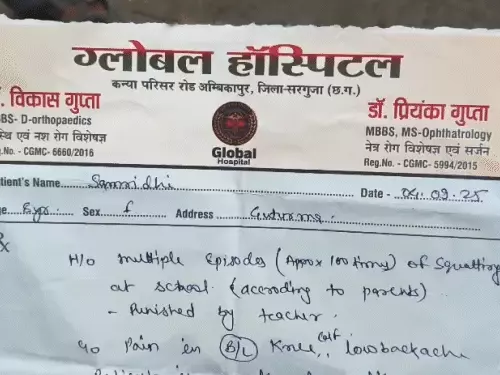 ग्लोबल हॉस्पिटल
कन्या परिसर रोड अम्बिकापुर, जिला-सरगुजा (छ.ग.)
. विकास गुप्ता
BS- D-orthopaedics
स्थि एवं नश रोग विशेषज्ञ
g.No. - CGMC- 6660/2016
Global
Hospital
डॉ. प्रियंका गुप्ता
MBBS, MS-Ophthatrology
नेत्र रोग विशेषज्ञ एवं सर्जन
Reg.No. - CGMC- 5994/2015
tient's Name Samridhi Date - 04.09.25
ge 8yrs Sex f Address
H/o multiple Episodes (Approx 100 times) of Squatting
at school (according to parents)
- Punished by teacher.
c/o Pain in B/L Knee, Calf lowbackache